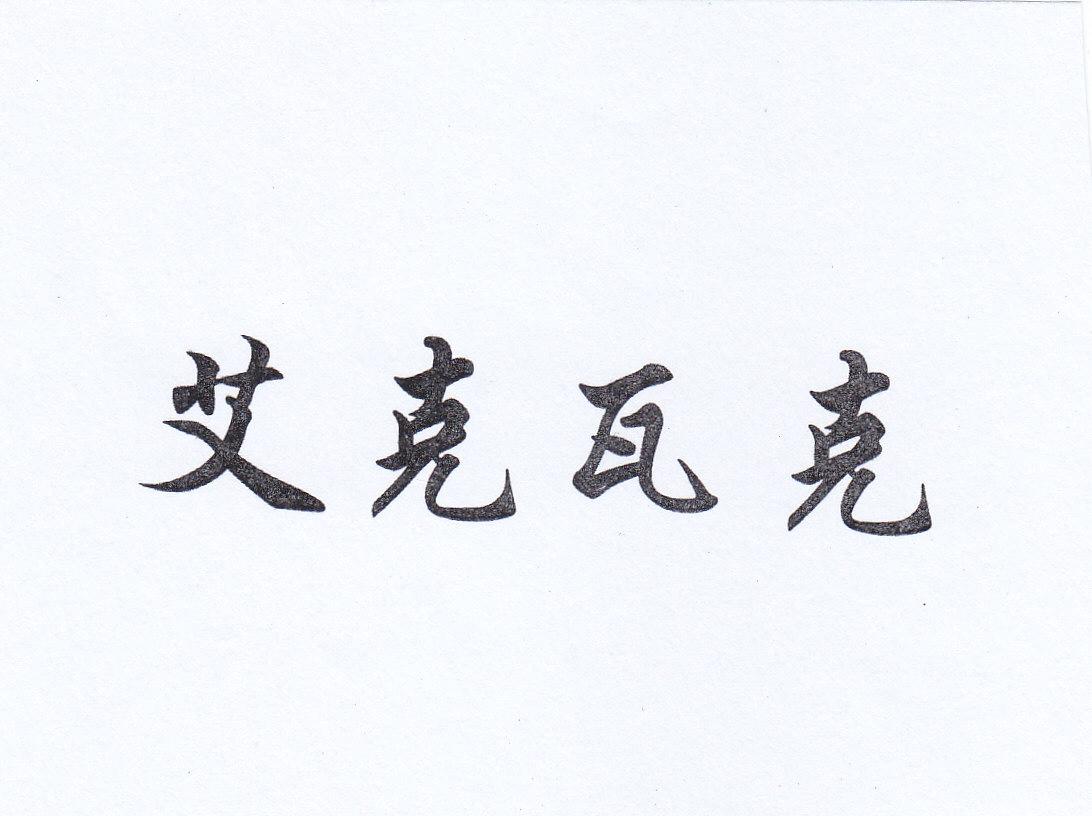 艾克瓦克